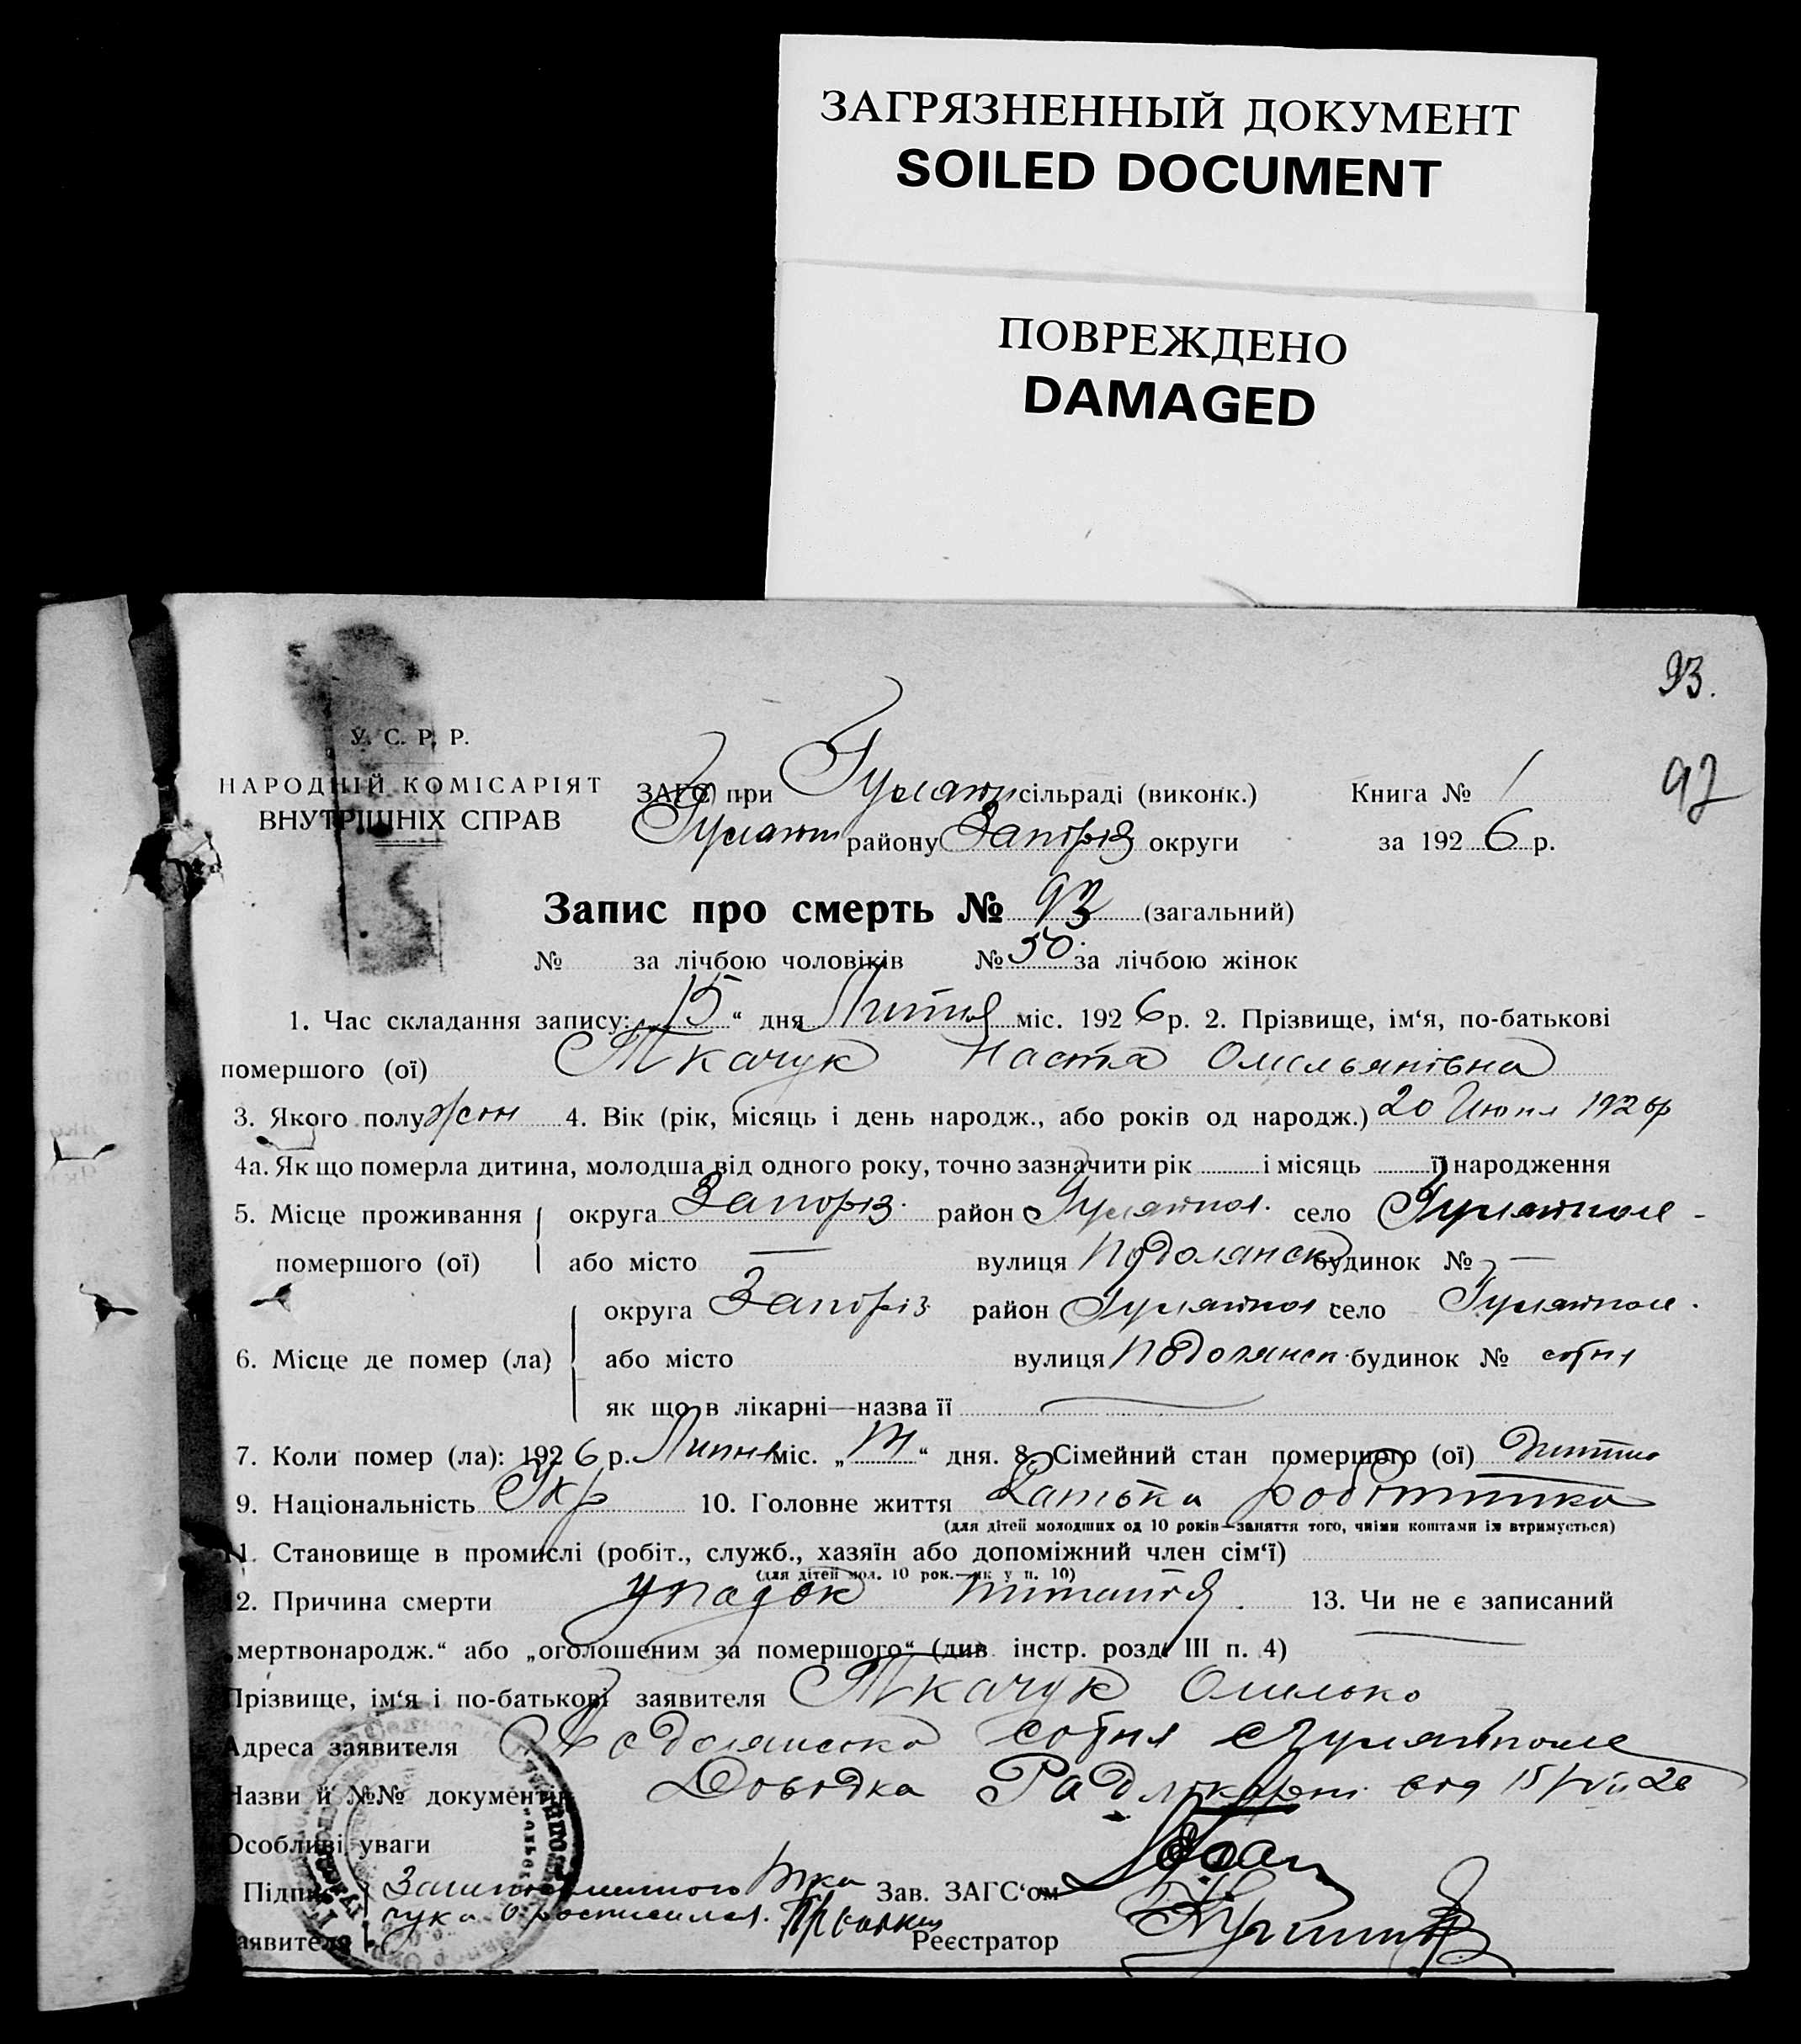 ЗАГРЯЗНЕННЫЙ ДОКУМЕНТ
SOILED DOCUMENT
ПОВРЕЖДЕНО
DAMAGED
93.
У. С. Р. Р.
НАРОДНІЙ КОМІСАРІЯТ
ВНУТРІШНІХ СПРАВ
ЗАГС при Гуляйп сільраді (виконк.) Книга № 1
92
Гуляйп району Запоріз округи за 1926 р.
Запис про смерть № 93 (загальний)
№ за лічбою чоловіків № 50. за лічбою жінок
1. Час складання запису: 15 “ дня Липня міс. 1926 р. 2. Прізвище, ім‘я, по-батькові
помершого (ої) Ткачук Настя Омельянівна
3. Якого полу жен 4. Вік (рік, місяць і день народж., або років од народж.) 20 Июня 1926р
4а. Як що померла дитина, молодша від одного року, точно зазначити рік і місяць її народження
5. Місце проживання округа Запоріз. район Гуляйпол. село Гуляйполе
помершого (ої) або місто — вулиця Подолянськ будинок № —
округа Запоріз район Гуляйпол село Гуляйполе.
6. Місце де помер (ла) або місто вулиця Подолянсь. будинок № сотня
як що в лікарні—назва її
7. Коли помер (ла): 1926 р. Липня міс. „ “ дня. 8. Сімейний стан помершого (ої) дитина
9. Національність Укр 10. Головне життя Батька робітника
(для дітей молодших од 10 років—заняття того, чиїми коштами їх втримується)
11. Становище в промислі (робіт., служб., хазяїн або допоміжний член сім‘ї)
(для дітей мол. 10 рок.—як у п. 10)
12. Причина смерти упадок питания. 13. Чи не є записаний
„мертвонародж.“ або „оголошеним за помершого“ (див. інстр. розд. III п. 4)
Прізвище, ім‘я і по-батькові заявителя Ткачук Омелько
Адреса заявителя Подолянська сотня с Гуляйполе
Назви й №№ документів Довідка Радлікарні від 15/VII 26
Особливі уваги
Підпис За неписьменного Тка Зав. ЗАГС‘ом
чука О росписался.
заявителя Реєстратор